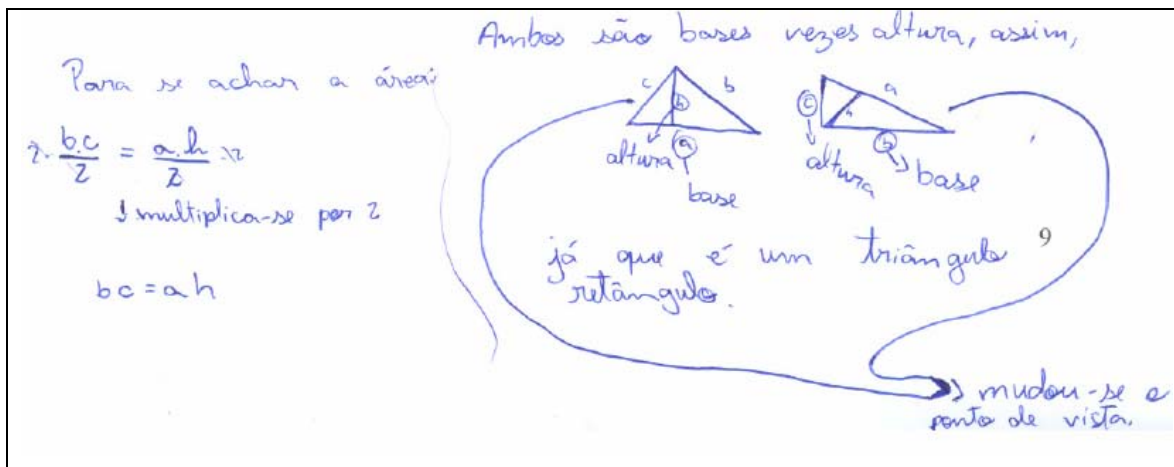 Para se achar a área:
2. b.c/2 = a.h/2 .2
↓ multiplica-se por 2
bc = ah
Ambos são bases vezes altura, assim,
c h b
altura a
base
c h a
altura b base
já que é um triângulo
retângulo.
9
mudou-se o
ponto de vista.